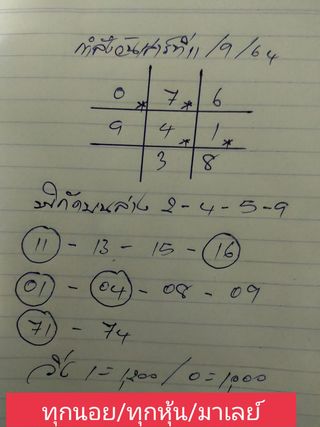 กำลังวันเสาร์ที่ 11/9/64
0 * 7 * 6
9 4 * 1 *
3 8
พิกัดบนล่าง 2-4-5-9
11 - 13 - 15 - 16
01 - 04 - 08 - 09
71 - 74
วิ่ง 1=1,200/0=1,000
ทุกนอย/ทุกหุ้น/มาเลย์